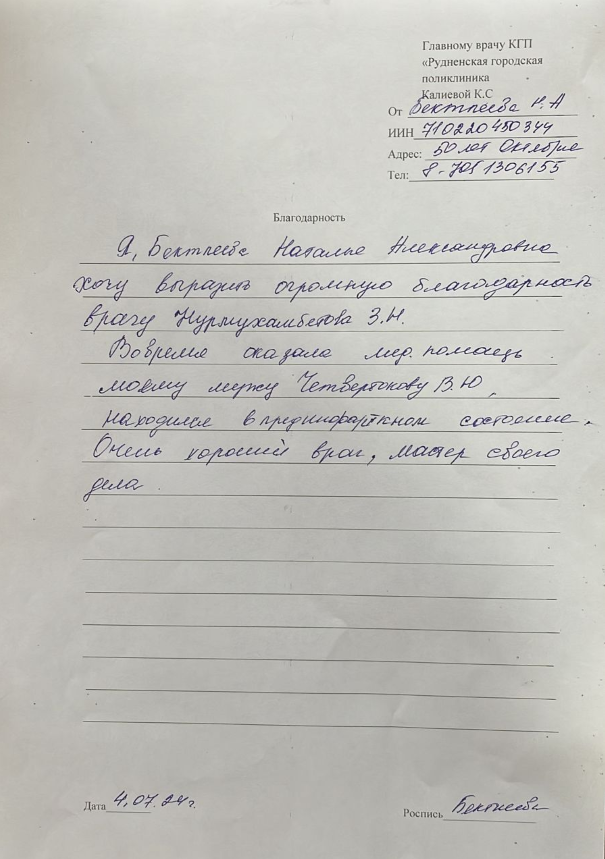 Главному врачу КГП
«Рудненская городская
поликлиника
Калиевой К.С
От Бектлеева Н.А
ИИН 710220450344
Адрес: 50 лет Октября
Тел: 8-705 1306155
Благодарность
Я, Бектлеева Наталья Александровна
хочу выразить огромную благодарность
врачу Нурмухамбетова З.Н.
Вовремя оказала мед. помощь
моему мужу Четвертокову В.Ю,
находился в прединфарктном состояние.
Очень хороший врач, мастер своего
дела.
Дата 4.07.24г.
Роспись Бектлеева